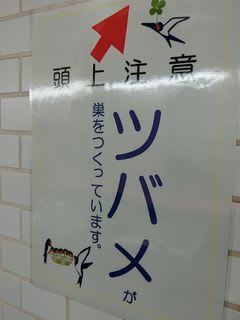 頭上注意
ツバメが
巣をつくっています。